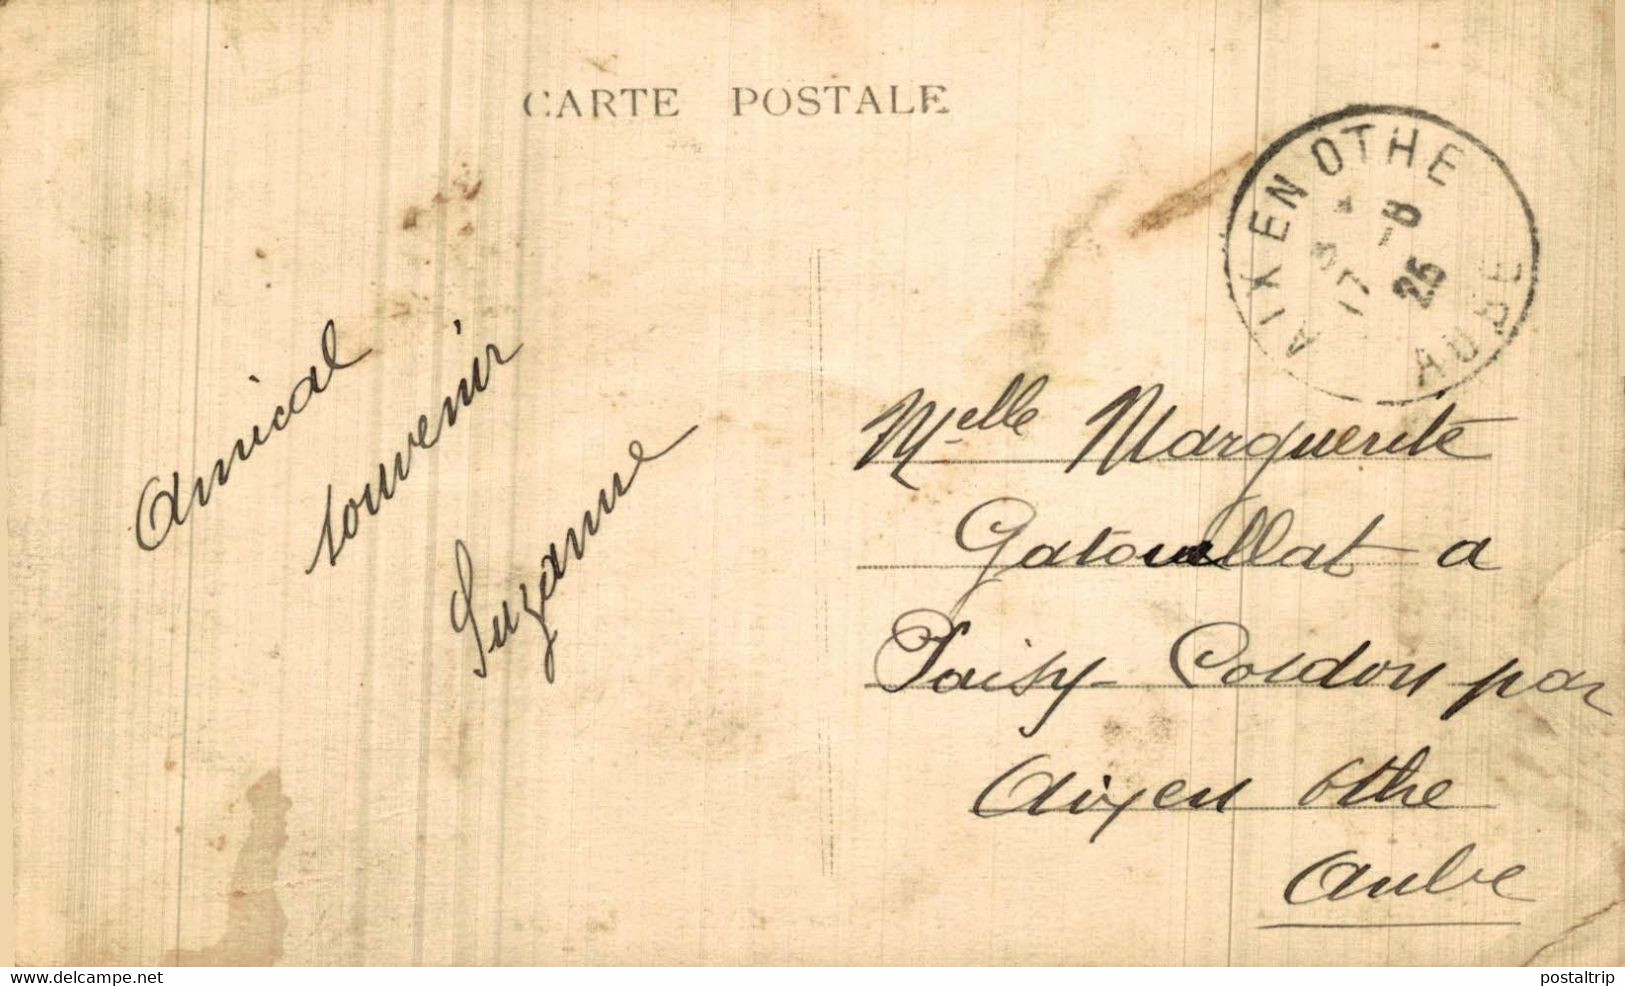 CARTE POSTALE
AIX EN OTHE
17 - 8
25
AUBE
Amical
souvenir
Suzanne
Melle Marguerite
Gatouillat a
Paisy Cosdon par
Aix en Othe
Aube
www.delcampe.net
postaltrip